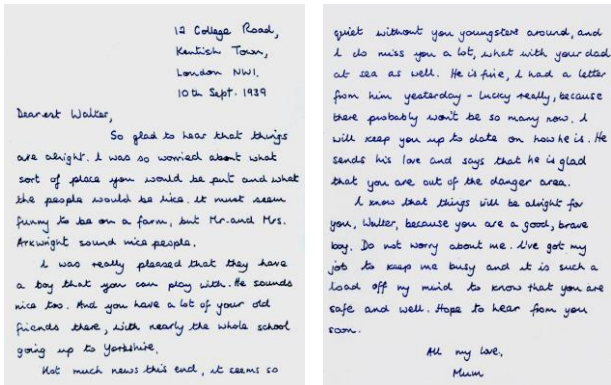 12 College Road,
Kentish Town,
London NW1.
10th Sept. 1939
Dearest Walter,
So glad to hear that things
are alright. I was so worried about what
sort of place you would be put and what
the people would be like. It must seem
funny to be on a farm, but Mr. and Mrs.
Arkwright sound nice people.
I was really pleased that they have
a boy that you can play with. He sounds
nice too. And you have a lot of your old
friends there, with nearly the whole school
going up to Yorkshire.
Not much news this end, it seems so
quiet without you youngsters around, and
I do miss you a lot, what with your dad
at sea as well. He is fine, I had a letter
from him yesterday - lucky really, because
there probably won't be so many now. I
will keep you up to date on how he is. He
sends his love and says that he is glad
that you are out of the danger area.
I know that things will be alright for
you, Walter, because you are a good, brave
boy. Do not worry about me. I've got my
job to keep me busy and it is such a
load off my mind to know that you are
safe and well. Hope to hear from you
soon.
All my love,
Mum